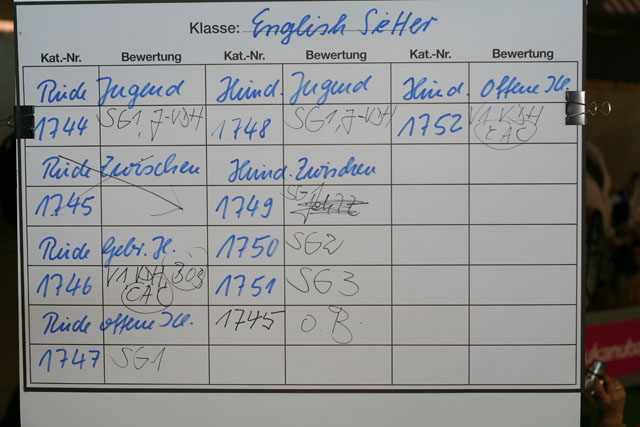 Klasse: English Setter
Kat.-Nr. Bewertung Kat.-Nr. Bewertung Kat.-Nr. Bewertung
Rüde Jugend Hünd. Jugend Hünd. Offene Kl.
1744 SG1, J-VDH 1748 SG1, J-VDH 1752 V1 VDH CAC
Rüde Zwischen Hünd. Zwischen
1745 1749 SG1
Rüde Gebr. Kl. 1750 SG2
1746 V1 VDH BOB CAC 1751 SG3
Rüde offene Kl. 1745 o.B.
1747 SG1